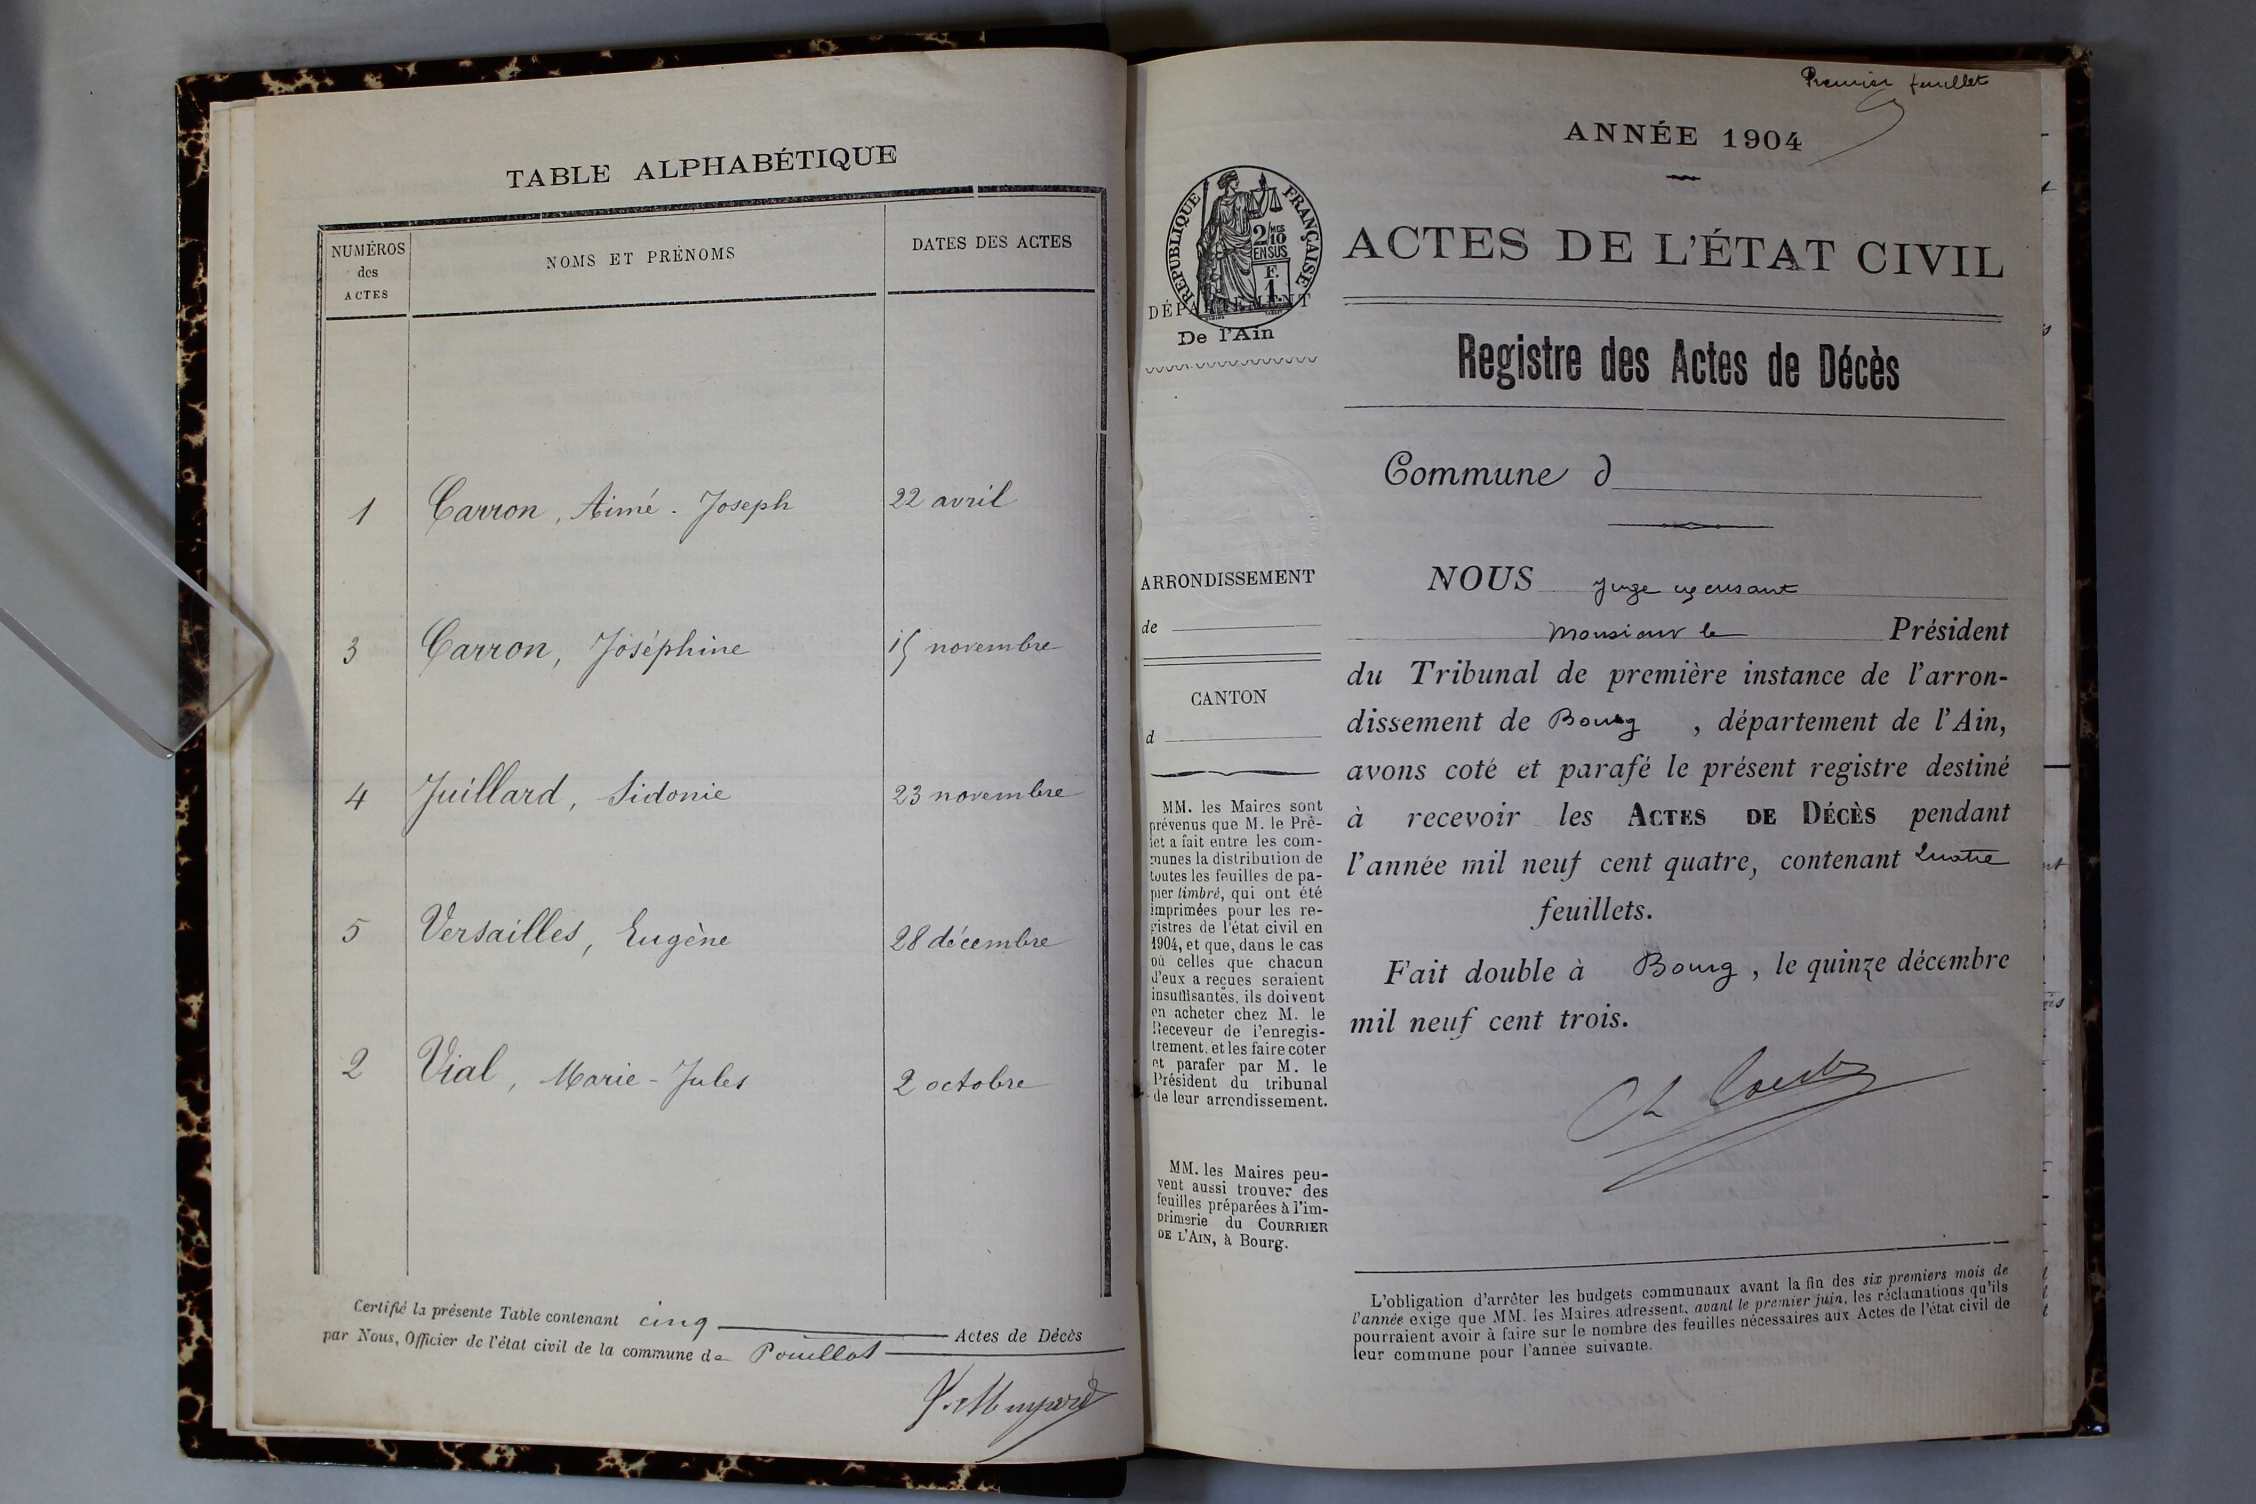 TABLE ALPHABÉTIQUE
NUMÉROS
des
ACTES
NOMS ET PRÉNOMS
DATES DES ACTES
1 Carron, Aimé-Joseph 22 avril
3 Carron, Joséphine 15 novembre
4 Juillard, Sidonie 23 novembre
5 Versailles, Eugène 28 décembre
2 Vial, Marie-Jules 2 octobre
Certifié la présente Table contenant cinq Actes de Décès
par Nous, Officier de l'état civil de la commune de Pouillat
Premier feuillet
ANNÉE 1904
RÉPUBLIQUE FRANÇAISE
2/10
EN SUS
F.
1.
DÉPARTEMENT
De l'Ain
ACTES DE L'ÉTAT CIVIL
Registre des Actes de Décès
Commune d
ARRONDISSEMENT
de
CANTON
d
MM. les Maires sont
prévenus que M. le Pré-
fet a fait entre les com-
munes la distribution de
toutes les feuilles de pa-
pier timbré, qui ont été
imprimées pour les re-
gistres de l'état civil en
1904, et que, dans le cas
où celles que chacun
d'eux a reçues seraient
insuffisantes, ils doivent
en acheter chez M. le
Receveur de l'enregis-
trement, et les faire coter
et parafer par M. le
Président du tribunal
de leur arrondissement.
MM. les Maires peu-
vent aussi trouver des
feuilles préparées à l'im-
primerie du COURRIER
DE L'AIN, à Bourg.
NOUS Juge exensant
Monsieur le Président
du Tribunal de première instance de l'arron-
dissement de Bourg, département de l'Ain,
avons coté et parafé le présent registre destiné
à recevoir les ACTES DE DÉCÈS pendant
l'année mil neuf cent quatre, contenant Quatre
feuillets.
Fait double à Bourg, le quinze décembre
mil neuf cent trois.
L'obligation d'arrêter les budgets communaux avant la fin des six premiers mois de
l'année exige que MM. les Maires adressent, avant le premier juin, les réclamations qu'ils
pourraient avoir à faire sur le nombre des feuilles nécessaires aux Actes de l'état civil de
leur commune pour l'année suivante.